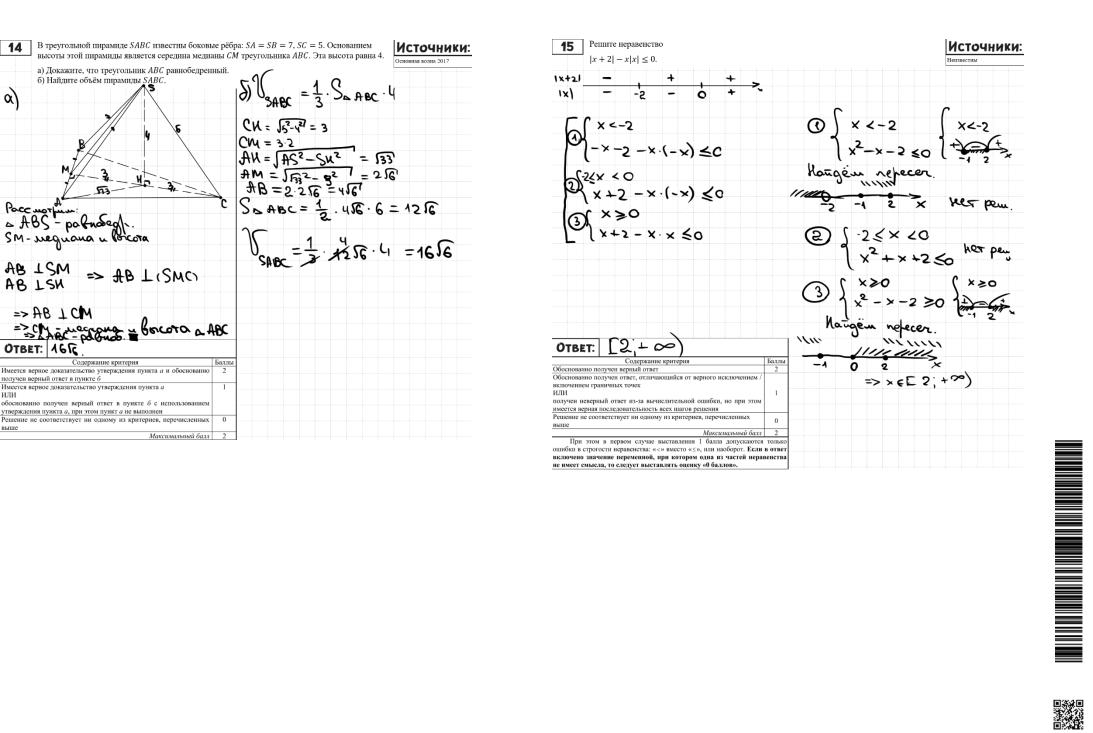 14
В треугольной пирамиде SABC известны боковые рёбра: SA = SB = 7, SC = 5. Основанием
высоты этой пирамиды является середина медианы CM треугольника ABC. Эта высота равна 4.
а) Докажите, что треугольник ABC равнобедренный.
б) Найдите объём пирамиды SABC.
Источники:
Основная волна 2017
а)
S
B
M
A
C
H
4
3
√33
Рассмотрим:
△ ABS - равнобедр.
SM - медиана и высота
AB ⊥ SM
AB ⊥ SH
=> AB ⊥ (SMC)
=> AB ⊥ CM
=> CM - медиана и высота △ ABC
=> △ABC - равноб.
б) V SABC = 1/3 · S△ ABC · 4
CH = √5²-4² = 3
CM = 3·2
AH = √AS² - SH² = √33
AM = √√33² - 3² = 2√6
AB = 2·2√6 = 4√6
S△ ABC = 1/2 · 4√6 · 6 = 12√6
V SABC = 1/3 · 12√6 · 4 = 16√6
4
ОТВЕТ: 16√6.
Содержание критерия Баллы
Имеется верное доказательство утверждения пункта а и обоснованно
получен верный ответ в пункте б 2
Имеется верное доказательство утверждения пункта а 1
ИЛИ
обоснованно получен верный ответ в пункте б с использованием
утверждения пункта а, при этом пункт а не выполнен
Решение не соответствует ни одному из критериев, перечисленных
выше 0
Максимальный балл 2
15
Решите неравенство
|x + 2| − x|x| ≤ 0.
Источники:
Неизвестны
|x+2| − + +
|x| − -2 − 0 + x
① x < -2
-x - 2 - x·(-x) ≤ 0
② -2 ≤ x < 0
x + 2 - x·(-x) ≤ 0
③ x ≥ 0
x + 2 - x·x ≤ 0
① x < -2
x² - x - 2 ≤ 0
x < -2
+ − + -1 2 x
Найдём пересеч.
-2 -1 2 x нет реш.
② -2 ≤ x < 0
x² + x + 2 ≤ 0
нет реш
③ x ≥ 0
x² - x - 2 ≥ 0
x ≥ 0
+ − + -1 2 x
Найдём пересеч.
-1 0 2 x
=> x ∈ [2; +∞)
ОТВЕТ: [2; +∞)
Содержание критерия Баллы
Обоснованно получен верный ответ 2
Обоснованно получен ответ, отличающийся от верного исключением /
включением граничных точек
ИЛИ 1
получен неверный ответ из-за вычислительной ошибки, но при этом
имеется верная последовательность всех шагов решения
Решение не соответствует ни одному из критериев, перечисленных
выше 0
Максимальный балл 2
При этом в первом случае выставления 1 балла допускаются только
ошибки в строгости неравенства: «<» вместо «≤», или наоборот. Если в ответ
включено значение переменной, при котором одна из частей неравенства
не имеет смысла, то следует выставлять оценку «0 баллов».